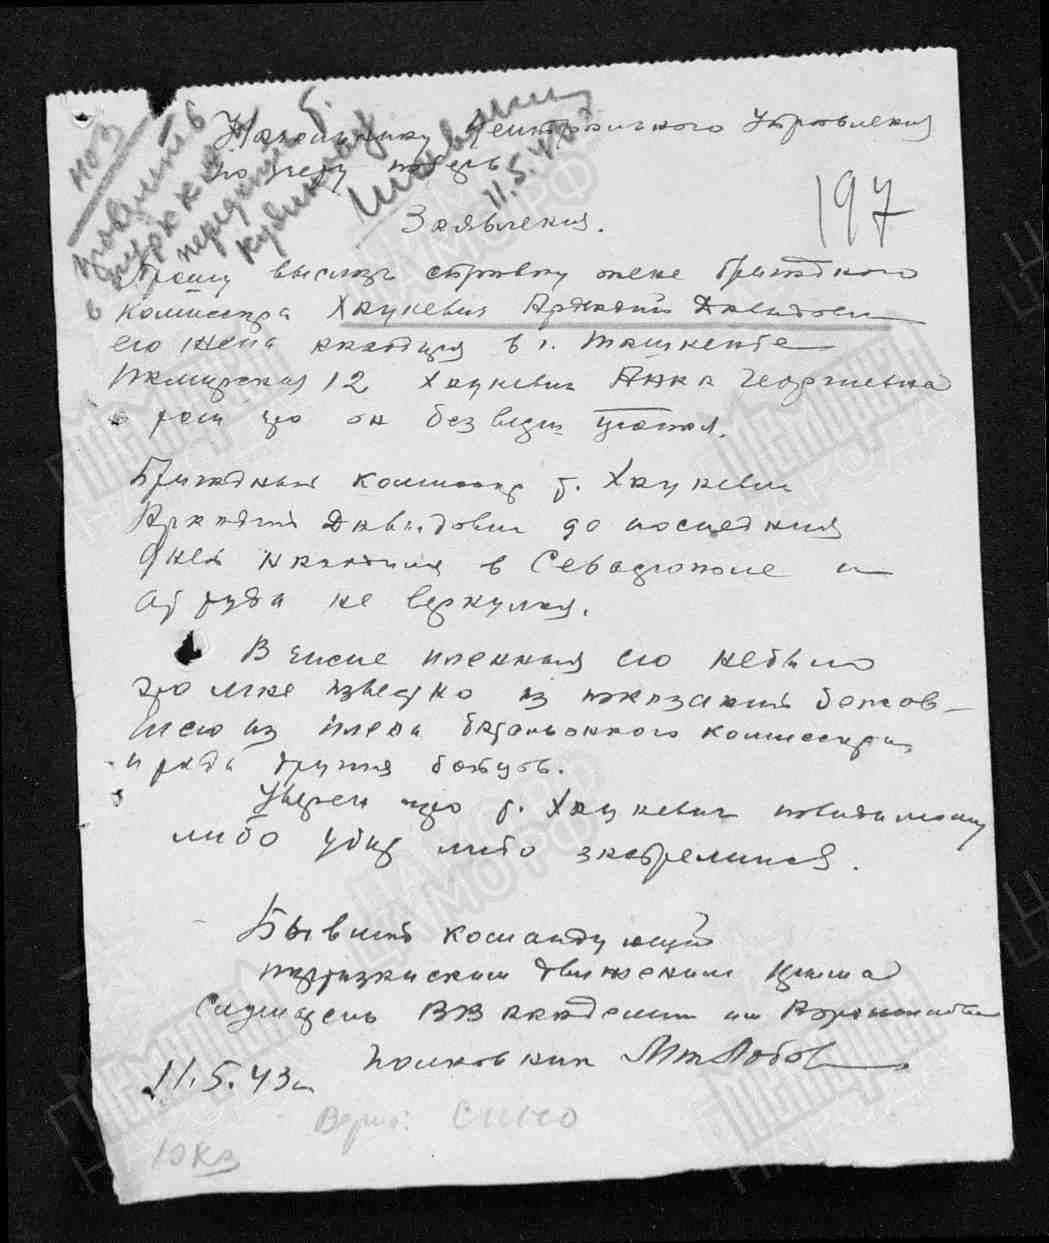 Начальнику Центрального Управления
по учету потерь
11.5.43
Заявления.
197
Прошу выслать справку жене бригадного
комиссара Хацкевич Аркадий Давидович
его жена находится в г. Ташкенте
12 Хацкевич Анна Георгиевна
что он без вести пропал.
Бригадный комиссар т. Хацкевич
Аркадий Давидович до последних
дней находился в Севастополе и
оттуда не вернулся.
В числе пленных его небыло
это мне известно из показаний бежав-
шего из плена батальонного комиссара
и ряда других бойцов.
Уверен что т. Хацкевич повидимому
либо убит либо застрелился.
Бывший командующий
партизанским движением Крыма
Слушатель ВВ академии им Ворошилова
полковник
11.5.43г
Верно: